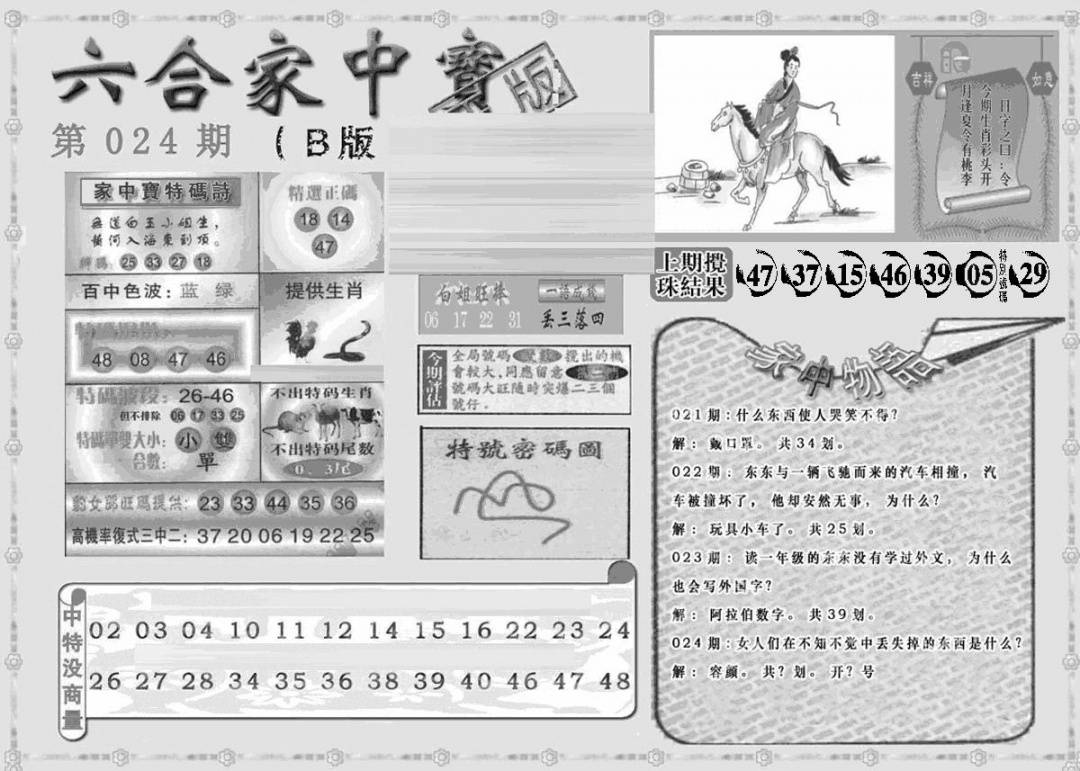 六合家中寶
版
第024期 (B版
家中寶特碼詩
無送白玉小姐生，
黃河入海東到頂。
25 33 27 18
精選正碼
18 14
47
百中色波：蓝 绿
提供生肖
48 08 47 46
特碼波段：26-46
但不排除 06 17 33 25
特碼單雙大小：小 雙
合數：單
不出特码生肖
不出特码尾数
0、3尾
旺碼提供：23 33 44 35 36
高機率復式三中二：37 20 06 19 22 25
白姐旺棒
06 17 22 31
一語成籤
丟三落四
今期評估
全局號碼 攪出的機
會較大，同應留意
號碼大旺隨時突爆二三個
號仔。
特號密碼圖
吉祥
如意
日字之曰：令
今期生肖彩头开
月逢夏今有桃李
上期攪珠結果
47 37 15 46 39 05 特別號碼 29
021期：什么东西使人哭笑不得？
解：戴口罩。 共34划。
022期：东东与一辆飞驰而来的汽车相撞， 汽
车被撞坏了， 他却安然无事， 为什么？
解： 玩具小车了。 共25划。
023期： 读一年级的东东没有学过外文， 为什么
也会写外国字？
解： 阿拉伯数字。 共39划。
024期：女人们在不知不觉中丢失掉的东西是什么？
解： 容颜。 共？划。 开？号
中特没商量
02 03 04 10 11 12 14 15 16 22 23 24
26 27 28 34 35 36 38 39 40 46 47 48